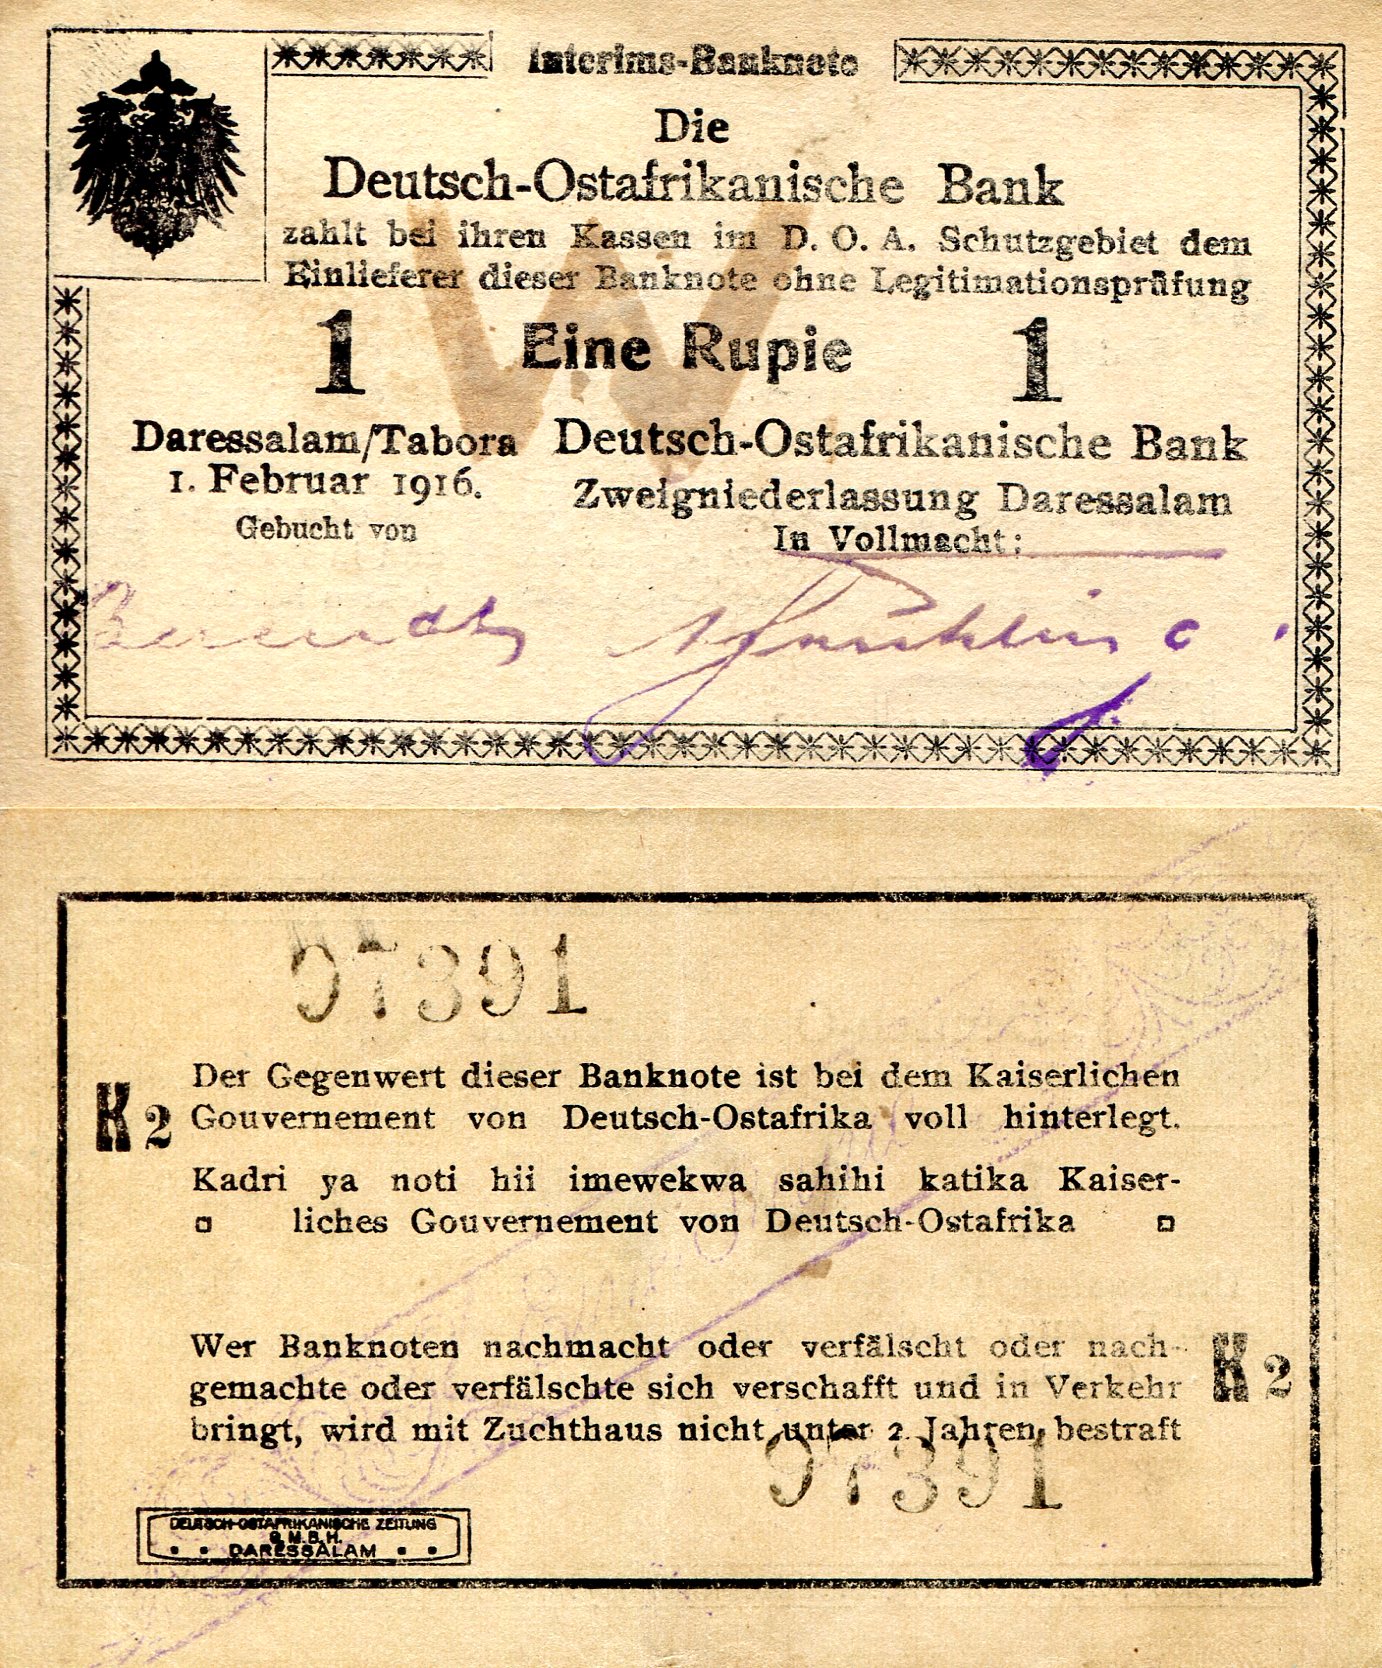 Interims-Banknote
Die
Deutsch-Ostafrikanische Bank
zahlt bei ihren Kassen im D. O. A. Schutzgebiet dem
Einlieferer dieser Banknote ohne Legitimationsprüfung
1 Eine Rupie 1
W
Daressalam/Tabora
1. Februar 1916.
Gebucht von
Deutsch-Ostafrikanische Bank
Zweigniederlassung Daressalam
In Vollmacht:
97391
Der Gegenwert dieser Banknote ist bei dem Kaiserlichen
Gouvernement von Deutsch-Ostafrika voll hinterlegt.
K 2
Kadri ya noti hii imewekwa sahihi katika Kaiser-
liches Gouvernement von Deutsch-Ostafrika
Wer Banknoten nachmacht oder verfälscht oder nach-
gemachte oder verfälschte sich verschafft und in Verkehr
bringt, wird mit Zuchthaus nicht unter 2 Jahren bestraft
K 2
97391
DEUTSCH-OSTAFRIKANISCHE ZEITUNG
G. M. B. H.
DARESSALAM